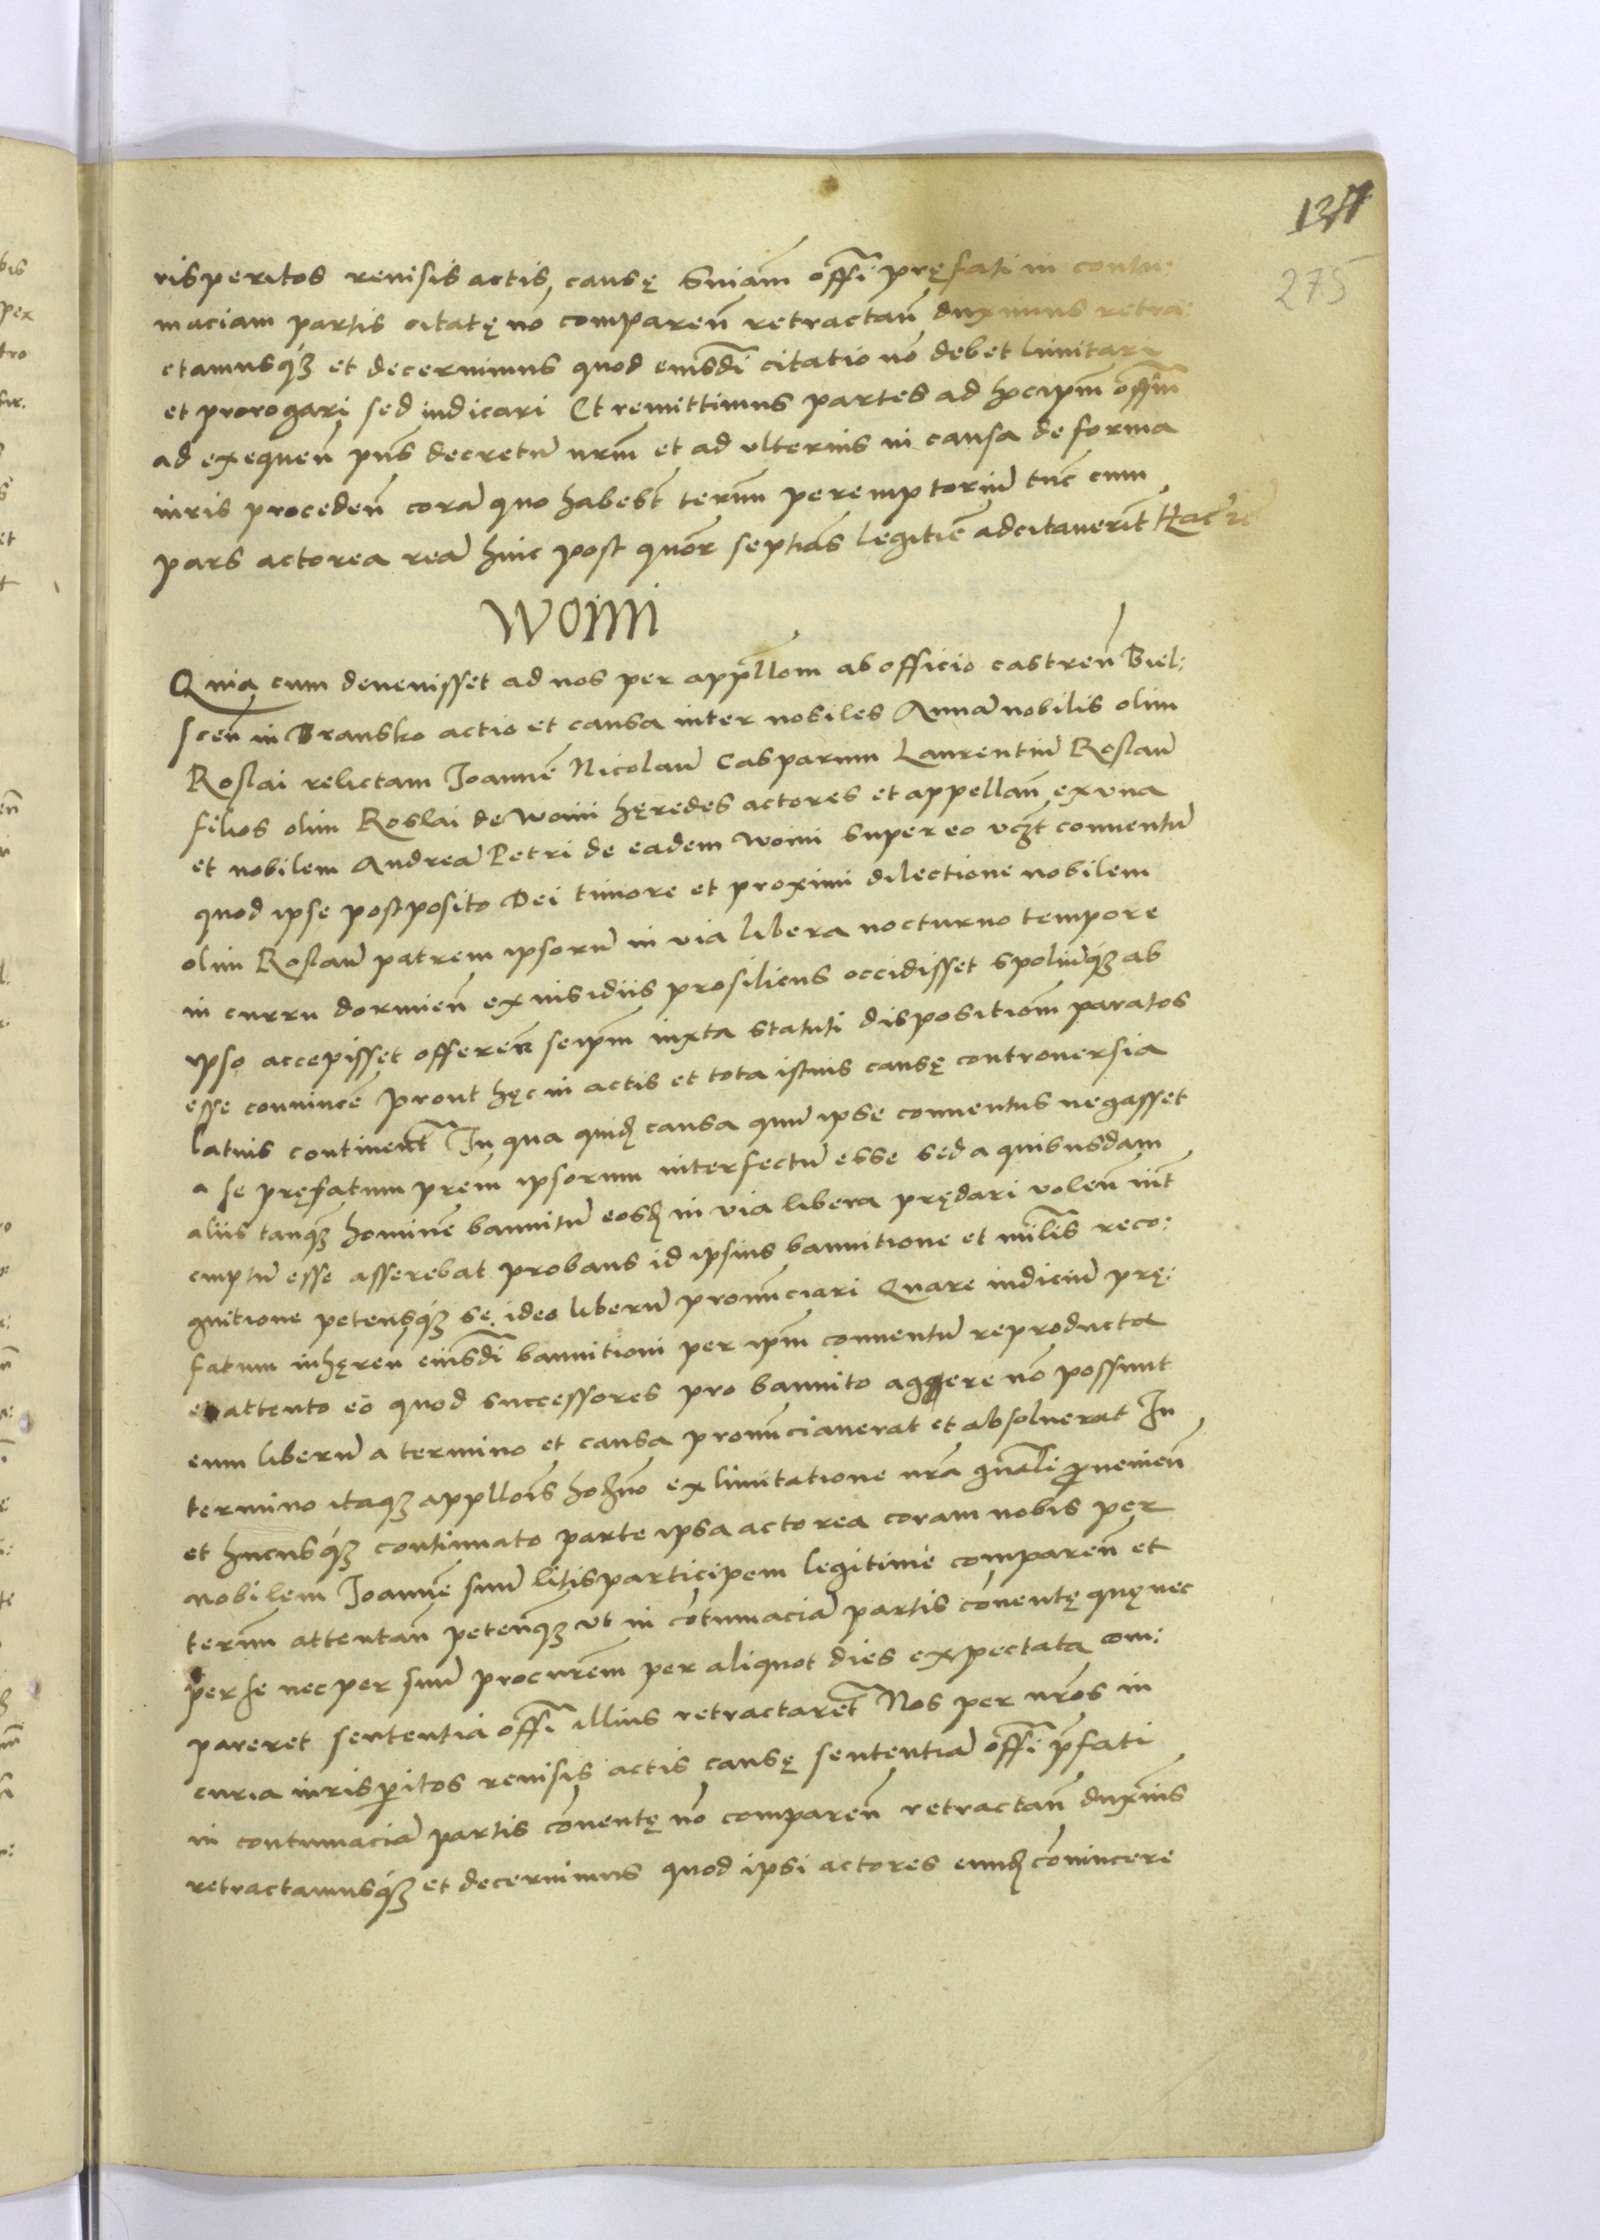 137
275
risperitos revisis actis causę sn̄iam offi̅ pręfati in contu:
maciam partis citatę nō comparen̄ retractan̄ duximus retra:
ctamusq́ȝ et decernimus quod eiusdi̅ citatio nō debet limitari
et prorogari sed iudicari Et remittimus partes ad hoc ip̄m offm̄
ad exequen̄ pn̄s decretū nrm̄ et ad vlterius in causa de forma
iuris proceden̄ corā quo habebt̄ termn̄ peremptoriū tūc cum
pars actorea reā hinc post quōr septias̄ legitiē adcitauerit̄
Woini
Quia cum deuenisset ad nos per appellom̄ ab officio castren̄ Biel:
scen̄ in Bransko actio et causa inter nobiles Annā nobilis olim
Roslai relictam Joannē Nicolaū Casparum Laurentiū Roslaū
filios olim Roslai de Woini hęredes actores et appellan̄ ex vna
et nobilem Andreā Petri de eadem Woini super eo vcȝt conuentū
quod ipse postposito Dei timore et proximi dilectione nobilem
olim Roslaū patrem ipsorū in via libera nocturno tempore
in curru dormien̄ ex insidiis prosiliens occidisset spoliūq́ȝ ab
ipso accepisset offeren̄ seipm̄ iuxta statuti dispositiom̄ paratos
esse conuincē prout hęc in actis et tota istius causę controuersia
latius continent̄ In qua quidȩ causa quū ipse conuentus negasset
a se pręfatum prēm ipsorum interfectū esse sed a quibusdam
aliis tanq́ȝ hominē bannitū eosd in via libera prędari volen̄ int̄
emptū esse asserebat probans id ipsius bannitione et militis reco:
gnitione petensq́ȝ se ideo liberū pronūciari Quare iudiciū prę:
fatum inhęren̄ eiusdi̅ bannitioni per ipm̄ conuentū reproductæ
et attento eō quod successores pro bannito aggere nō possunt
eum liberū a termino et causa pronūciauerat et absoluerat In
termino itaqȝ appllois̄ hoȝno ex limitatione nrā gnāli proueniēn
et hucusq́ȝ continuato parte ipsa actorea coram nobis per
nobilem Joannē suū litis participem legitimè comparen̄ et
termn̄ attentan̄ petenq́ȝ vt in cōtumaciā partis cōuentę quę nec
per se nec per suū procurem̄ per aliquot dies expectata com:
pareret sententia offi̅ illius retractaret̄ Nos per nrōs in
curia iurisperitos reuisis actis causę sententiā offi̅ pr̄fati
in contumaciā partis cōuentę nō comparen̄ retractan̄ duxim̄s
retractamusq́ȝ et decernimus quod ipsi actores eund cōuincere